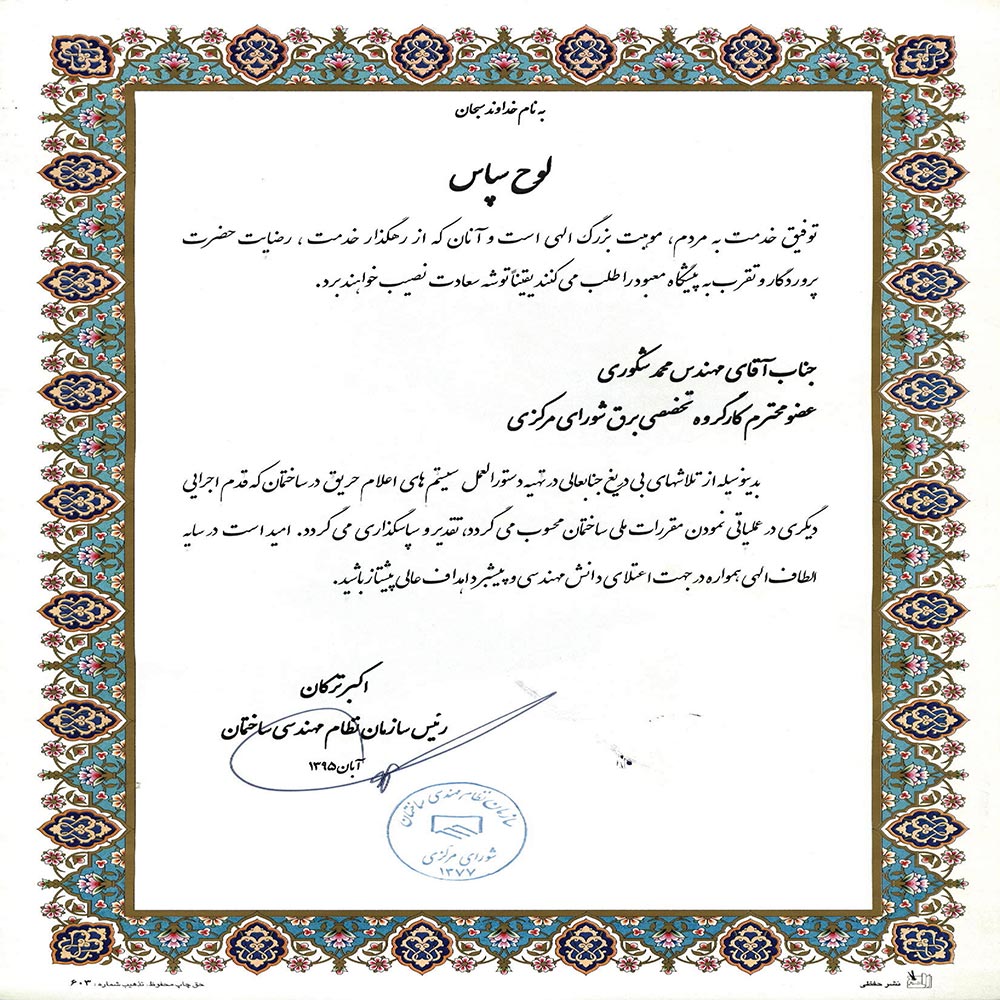 به نام خداوند سبحان
لوح سپاس
توفیق خدمت به مردم، موهبت بزرگ الهی است و آنان که از رهگذار خدمت، رضایت حضرت
پروردگار و تقرب به پیشگاه معبود را طلب می کنند یقیناً توشه سعادت نصیب خواهند برد.
جناب آقای مهندس محمد شکوری
عضو محترم کارگروه تخصصی برق شورای مرکزی
بدینوسیله از تلاشهای بی دریغ جنابعالی در تهیه دستورالعمل سیستم های اعلام حریق در ساختمان که قدم اجرایی
دیگری در عملیاتی نمودن مقررات ملی ساختمان محسوب می گردد، تقدیر و سپاسگذاری می گردد. امید است در سایه
الطاف الهی همواره در جهت اعتلای دانش مهندسی و پیشبرد اهداف عالی پیشتاز باشید.
اکبر ترکان
رئیس سازمان نظام مهندسی ساختمان
آبان ۱۳۹۵
سازمان نظام مهندسی ساختمان
شورای مرکزی
۱۳۷۷
نشر حفظی
حق چاپ محفوظ. تذهیب شماره: ۶۰۳